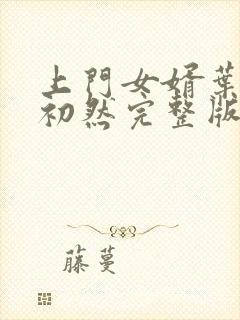 上門女婿葉
初然完整版
藤蔓